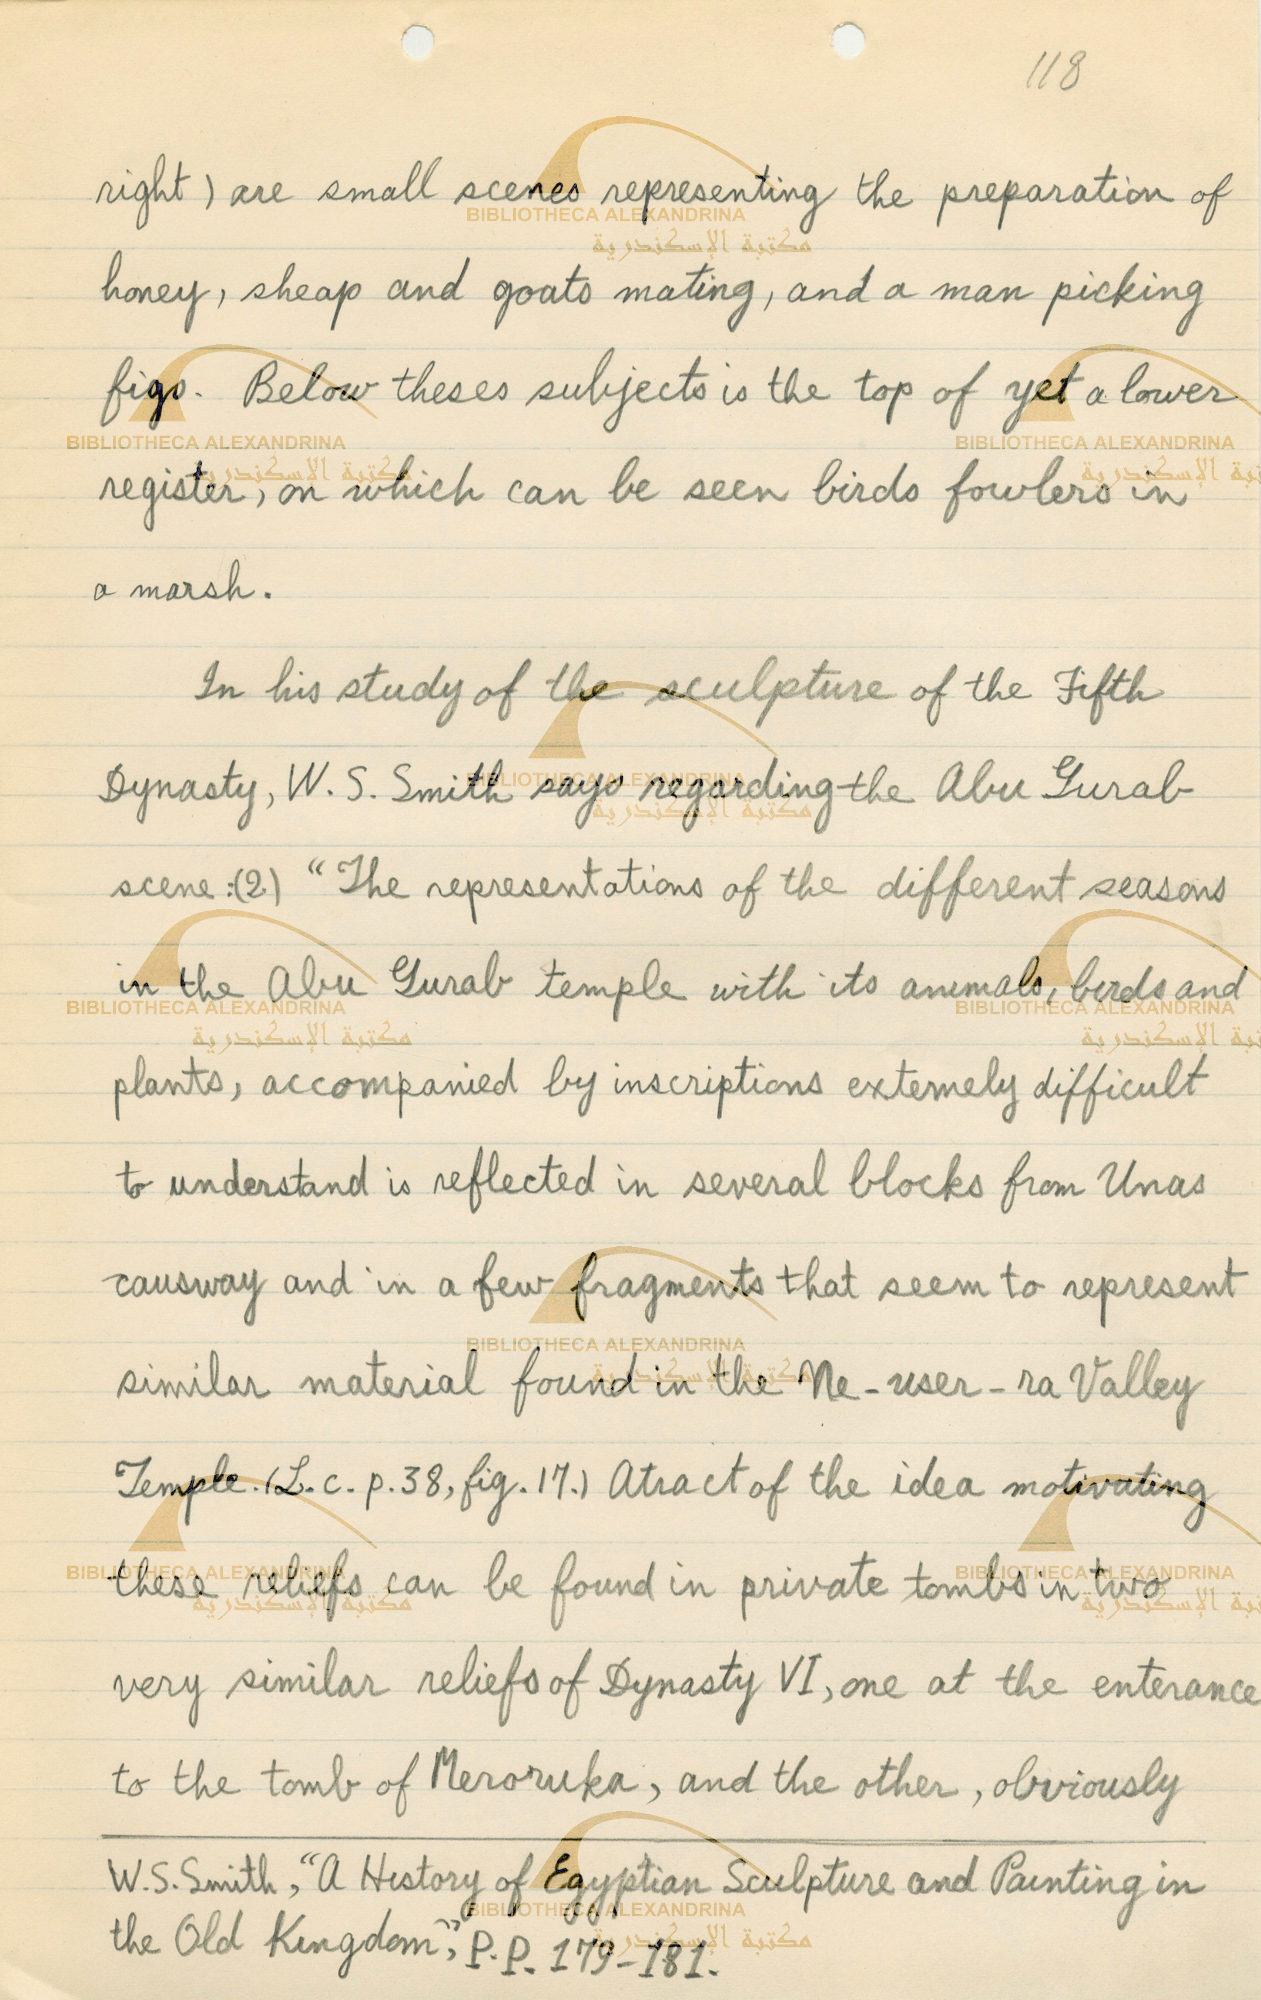 118
right) are small scenes representing the preparation of
honey, sheap and goats mating, and a man picking
figs. Below theses subjects is the top of yet a lower
register, on which can be seen birds fowlers in
a marsh.
In his study of the sculpture of the Fifth
Dynasty, W. S. Smith says regarding the Abu Gurab
scene:(2) "The representations of the different seasons
in the Abu Gurab temple with its animals, birds and
plants, accompanied by inscriptions extemely difficult
to understand is reflected in several blocks from Unas
causway and in a few fragments that seem to represent
similar material found in the Ne-user-ra Valley
Temple. (L.c. p.38, fig.17.) Atract of the idea motivating
these reliefs can be found in private tombs in two
very similar reliefs of Dynasty VI, one at the enterance
to the tomb of Meroruka, and the other, obviously
W.S. Smith, "A History of Egyptian Sculpture and Painting in
the Old Kingdom", P.P. 179-181.
BIBLIOTHECA ALEXANDRINA
مكتبة الإسكندرية